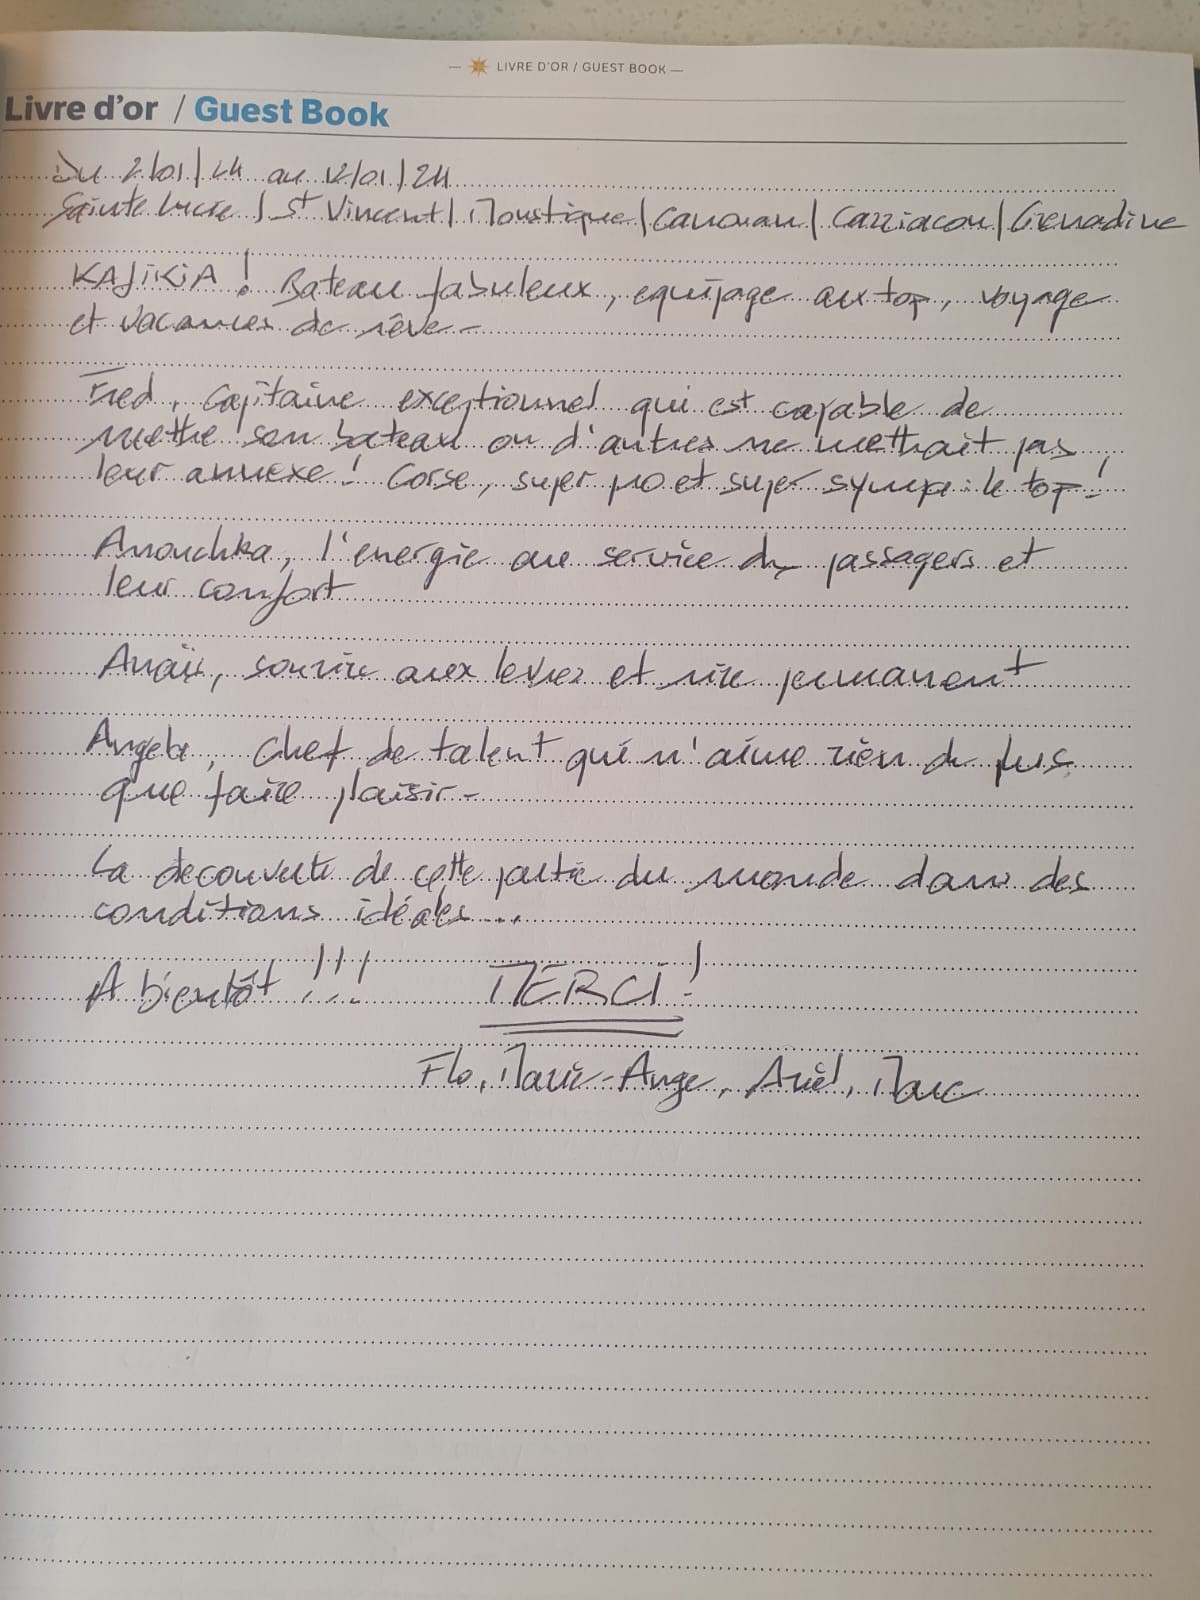 LIVRE D'OR / GUEST BOOK
Livre d'or / Guest Book
Du 2/01/24 au 12/01/24
Sainte Lucie / St Vincent / Moustique / Canouan / Carriacou / Grenadine
KAJIKIA ! Bateau fabuleux, equipage au top, voyage
et vacances de rêve -
Fred, Capitaine exceptionnel qui est capable de
mettre son bateau ou d'autres ne mettrait pas
leur annexe ! Corse, super pro et super sympa : le top !
Anouchka, l'energie au service des passagers et
leur confort
Anaïs, sourire aux levres et rire permanent
Angele, Chef de talent qui n'aime rien de plus
que faire plaisir -
La decouverte de cette partie du monde dans des
conditions idéales...
A bientôt !!! MERCI !
Flo, Marie-Ange, Ariel, Marc